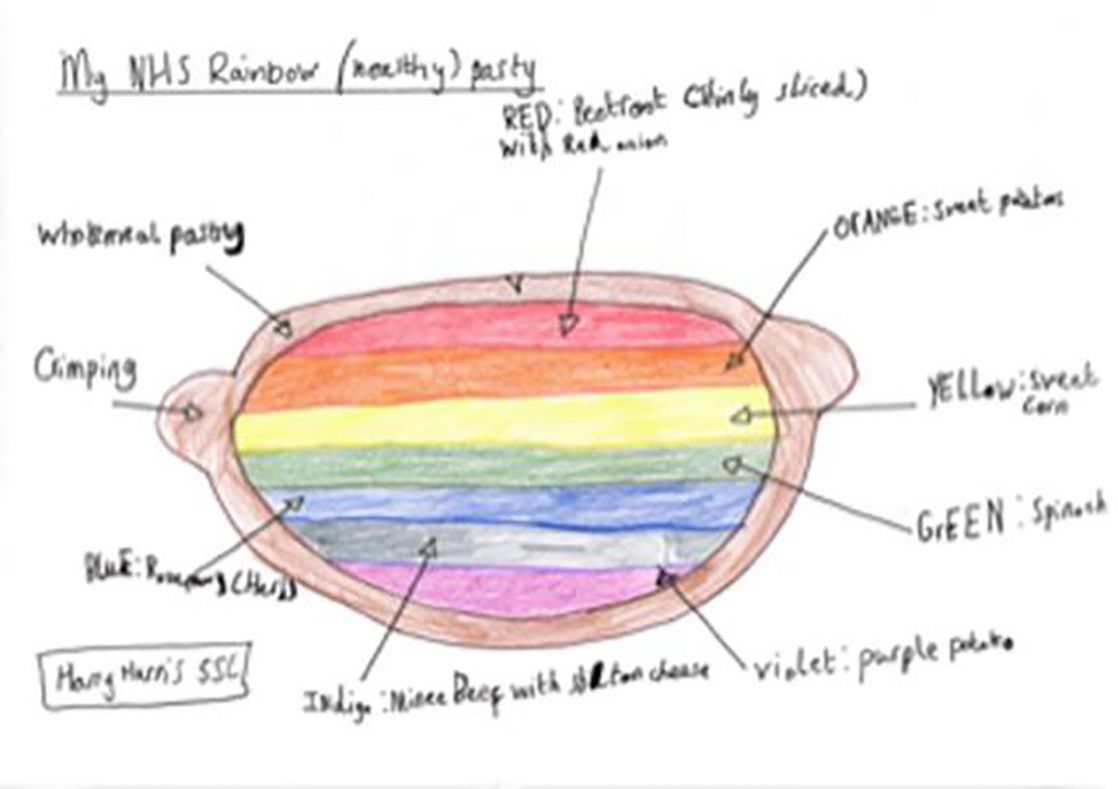 My NHS Rainbow (healthy) pasty
RED: Beetroot (thinly sliced)
with Red onion
wholemeal pastry
ORANGE: Sweet potatoes
Crimping
YELLOW: Sweet
Corn
GrEEN: Spinach
BLUE: Rosemary (Herb)
Harry Harris SSL
Indigo: Mince Beef with stilton cheese
violet: purple potato